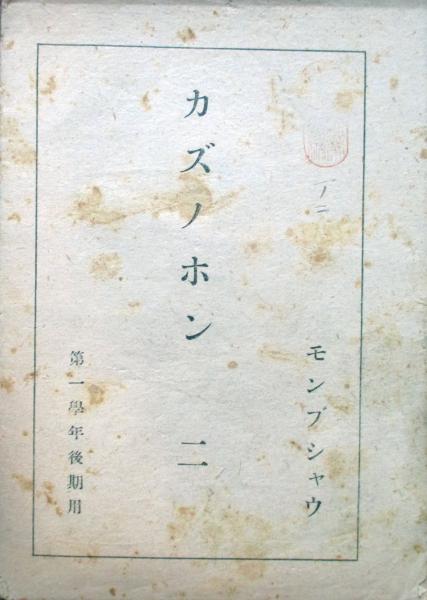 モンブシャウ
カズノホン 二
第一學年後期用
一ノ二